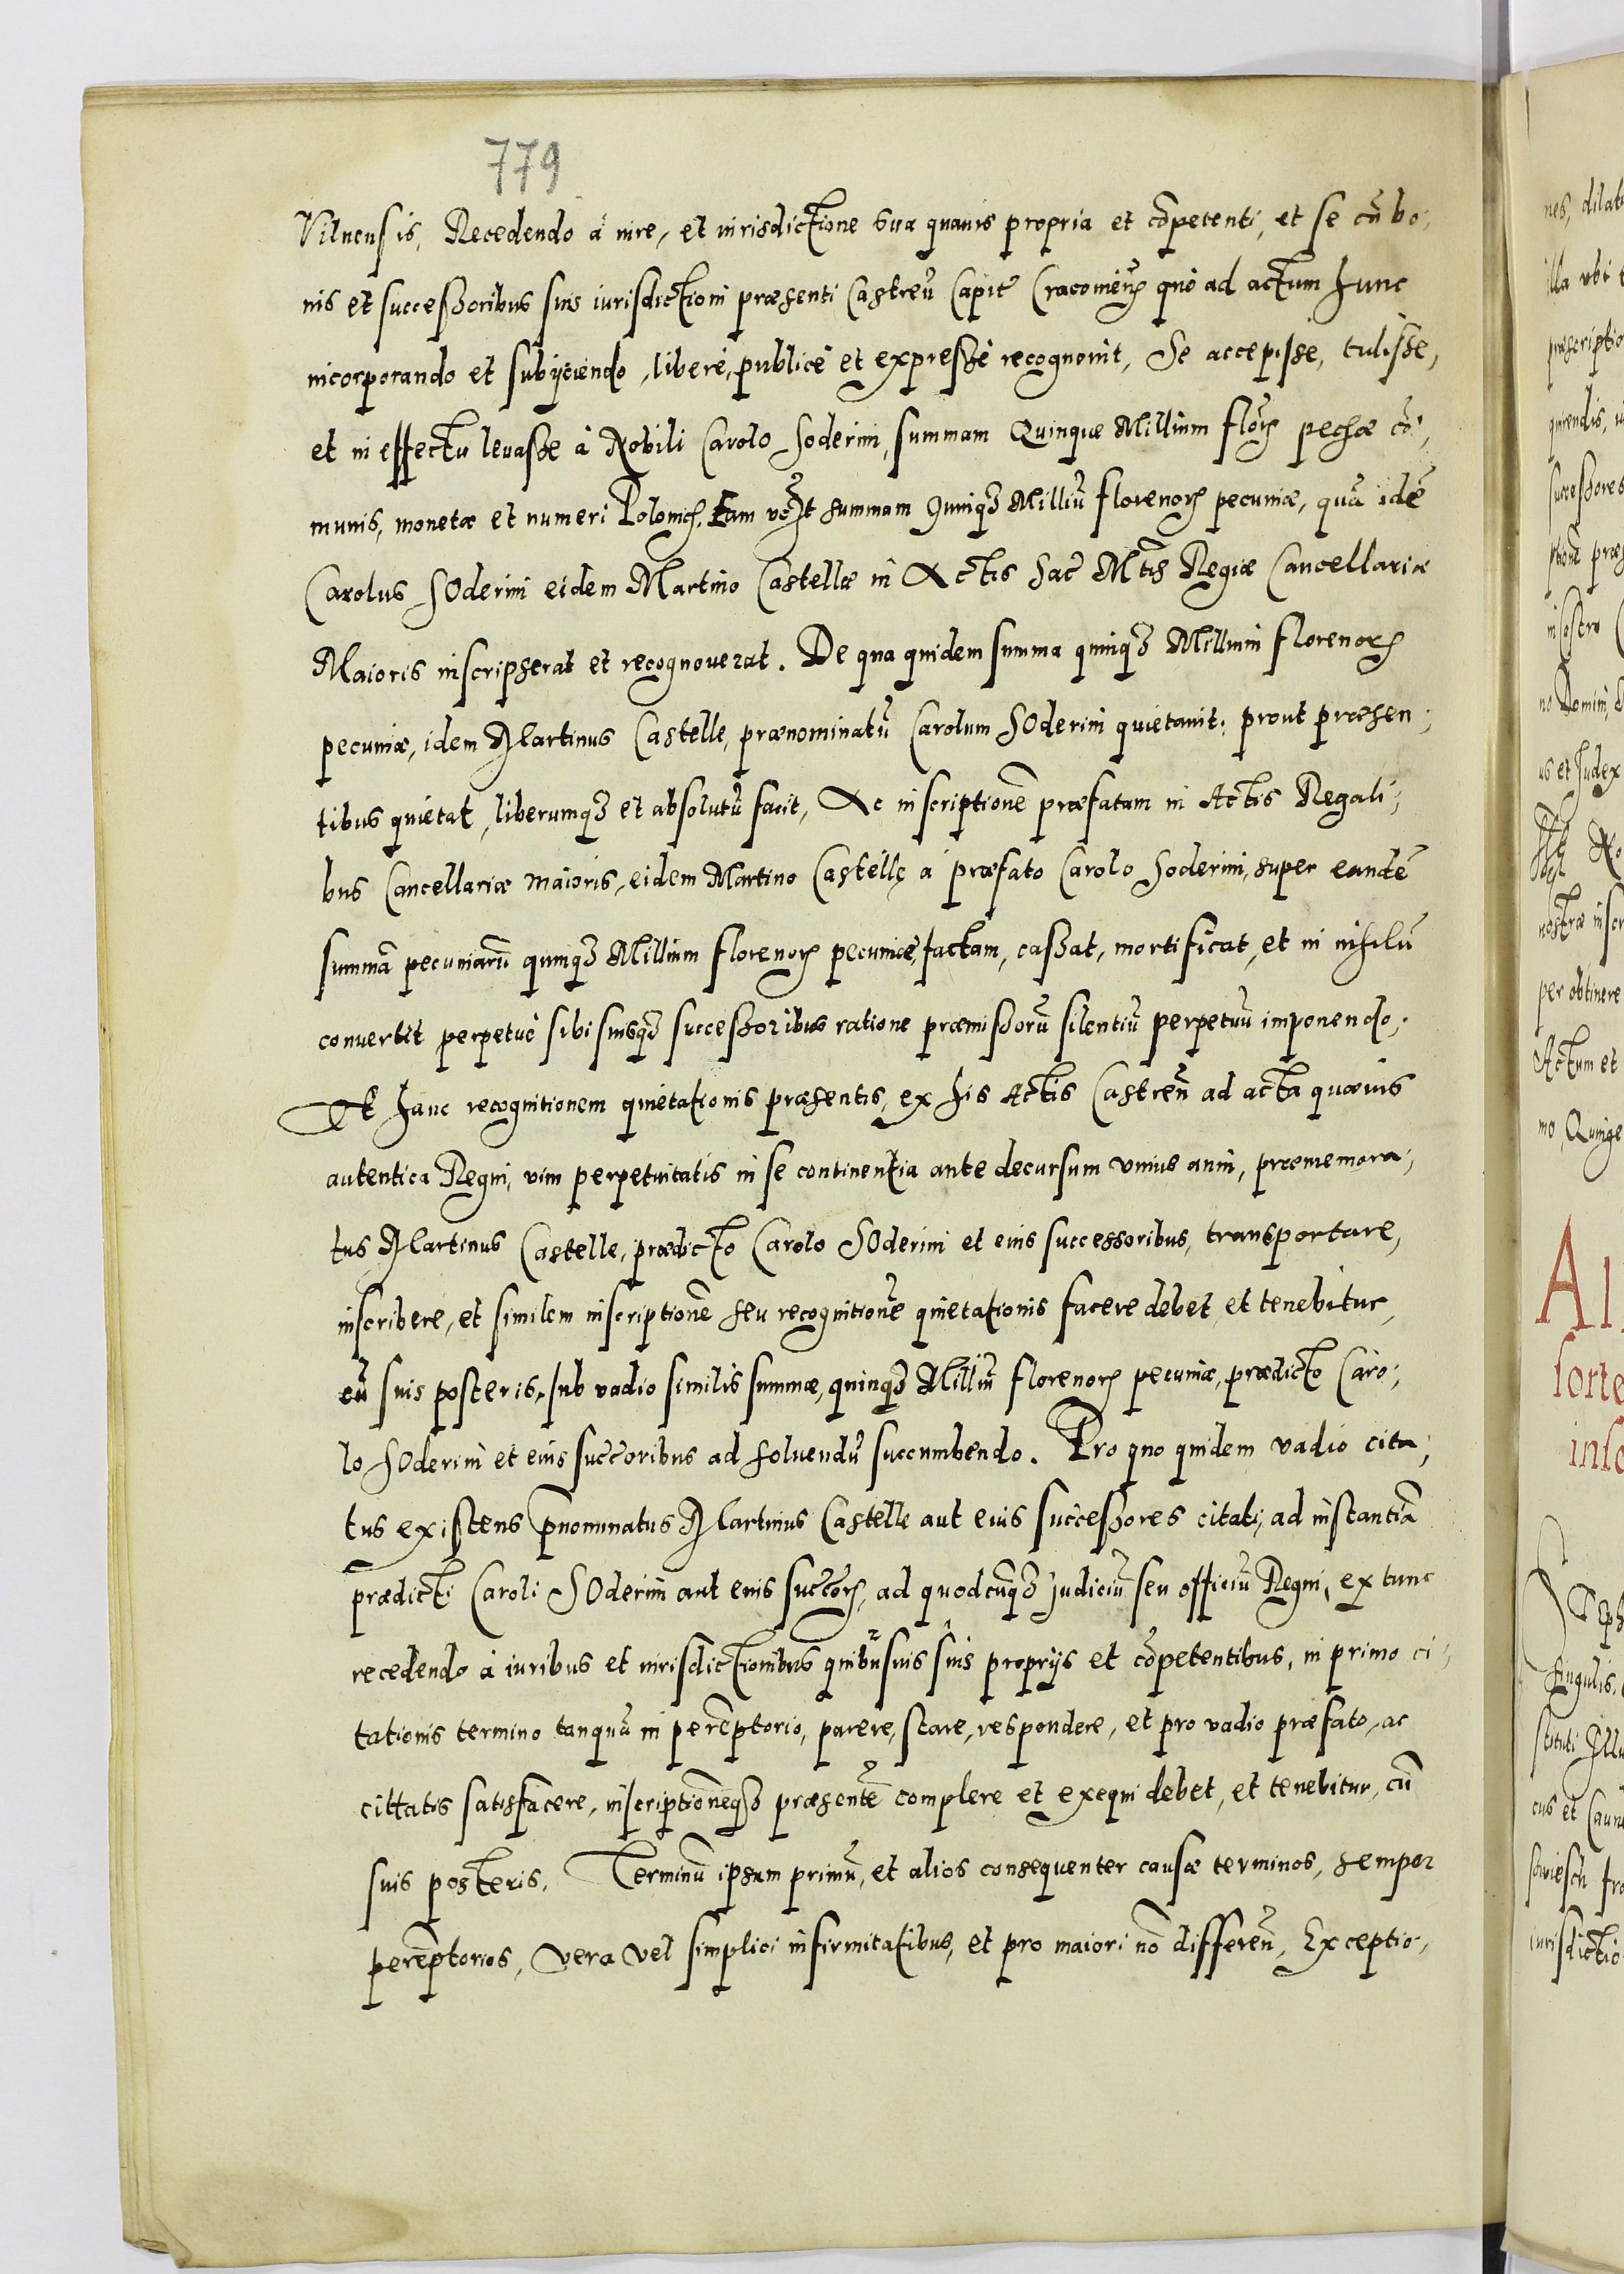 779
Vilnensis, Recedendo à iure, et iurisdictione sua quauis propria et cõpetenti, et se cũ bo,
nis et successoribus suis iurisdictioni præsenti Castreñ Capit Cracouieñ quò ad actum hunc
incorporando et subijciendo, liberè, publicè et expressè recognouit, Se accepisse, tulisse,
et in effectu leuasse à Nobili Carolo Soderini, summam Quinque Millium floꝝ pecſæ cõ,
munis, monetæ et numeri Polonicꝫ. Eam v̄o summam quinqꝫ Milliũ florenorꝫ pecuniæ, quã idẽ
Carolus SOderini eidem Martino Castellæ in Actis Sac Mtis Regiæ Cancellariæ
Maioris inscripserat et recognouerat. De qua quidem summa quinqꝫ Millium florenorꝫ
pecuniæ, idem Martinus Castelle, prænominatũ Carolum SOderini quietauit, prout præsen,
tibus quietat, liberumqꝫ et absolutũ facit, Ac inscriptionẽ præfatam in Actis Regali,
bus Cancellariæ maioris, eidem Martino Castellę à præfato Carolo Soderini, super eandẽ
summã pecuniarũ quinqꝫ Millium florenorꝫ pecuniæ, factam, cassat, mortificat, et in nihilũ
conuertit perpetuè sibi suisqꝫ successoribus ratione præmissorũ silentiũ perpetuũ imponendo.
Et hanc recognitionem quietationis præsentis, ex his Actis Castreñ ad acta quæuis
autentica Regni, vim perpetuitatis in se continentia ante decursum vnius anni, præmemora,
tus Martinus Castelle, prædicto Carolo SOderini et eius successoribus, transportare,
inscribere, et similem inscriptionẽ seu recognitionẽ quietationis facere debet et tenebitur,
cũ suis posteris, sub vadio similis summæ, quinqꝫ Milliũ florenorꝫ pecuniæ, prædicto Caro,
lo SOderini et eius succoribus ad soluendũ succumbendo. Pro quo quidem vadio cita,
tus existens p̄nominatus Martinus Castelle aut eius successores citati, ad instantiã
prædicti Caroli SOderini aut eius succorꝫ, ad quodcũqꝫ Judiciũ seu officiũ Regni, ex tunc
recedendo à iuribus et iurisdictionibus quibusuis suis proprijs et cõpetentibus, in primo ci,
tationis termino tanquã in perẽptorio, parere, stare, respondere, et pro vadio præfato, ac
cittatis satisfacere, inscriptionẽqꝫ præsentẽ complere et exequi debet, et tenebitur, cũ
suis posteris. Terminũ ipsum primũ, et alios consequenter causæ terminos, semper
perẽptorios, vera vel simplici infirmitatibus, et pro maiori nõ differeñ, Exceptio,
nes, dilat
illa vbi
præscriptio
quirendis,
successores
in castro
no Domini,
us et Judex
nostræ inscr
per obtinere
Actum et
mo, Quinge
forte
singulis,
stituti Illu
cus et
iurisdictio